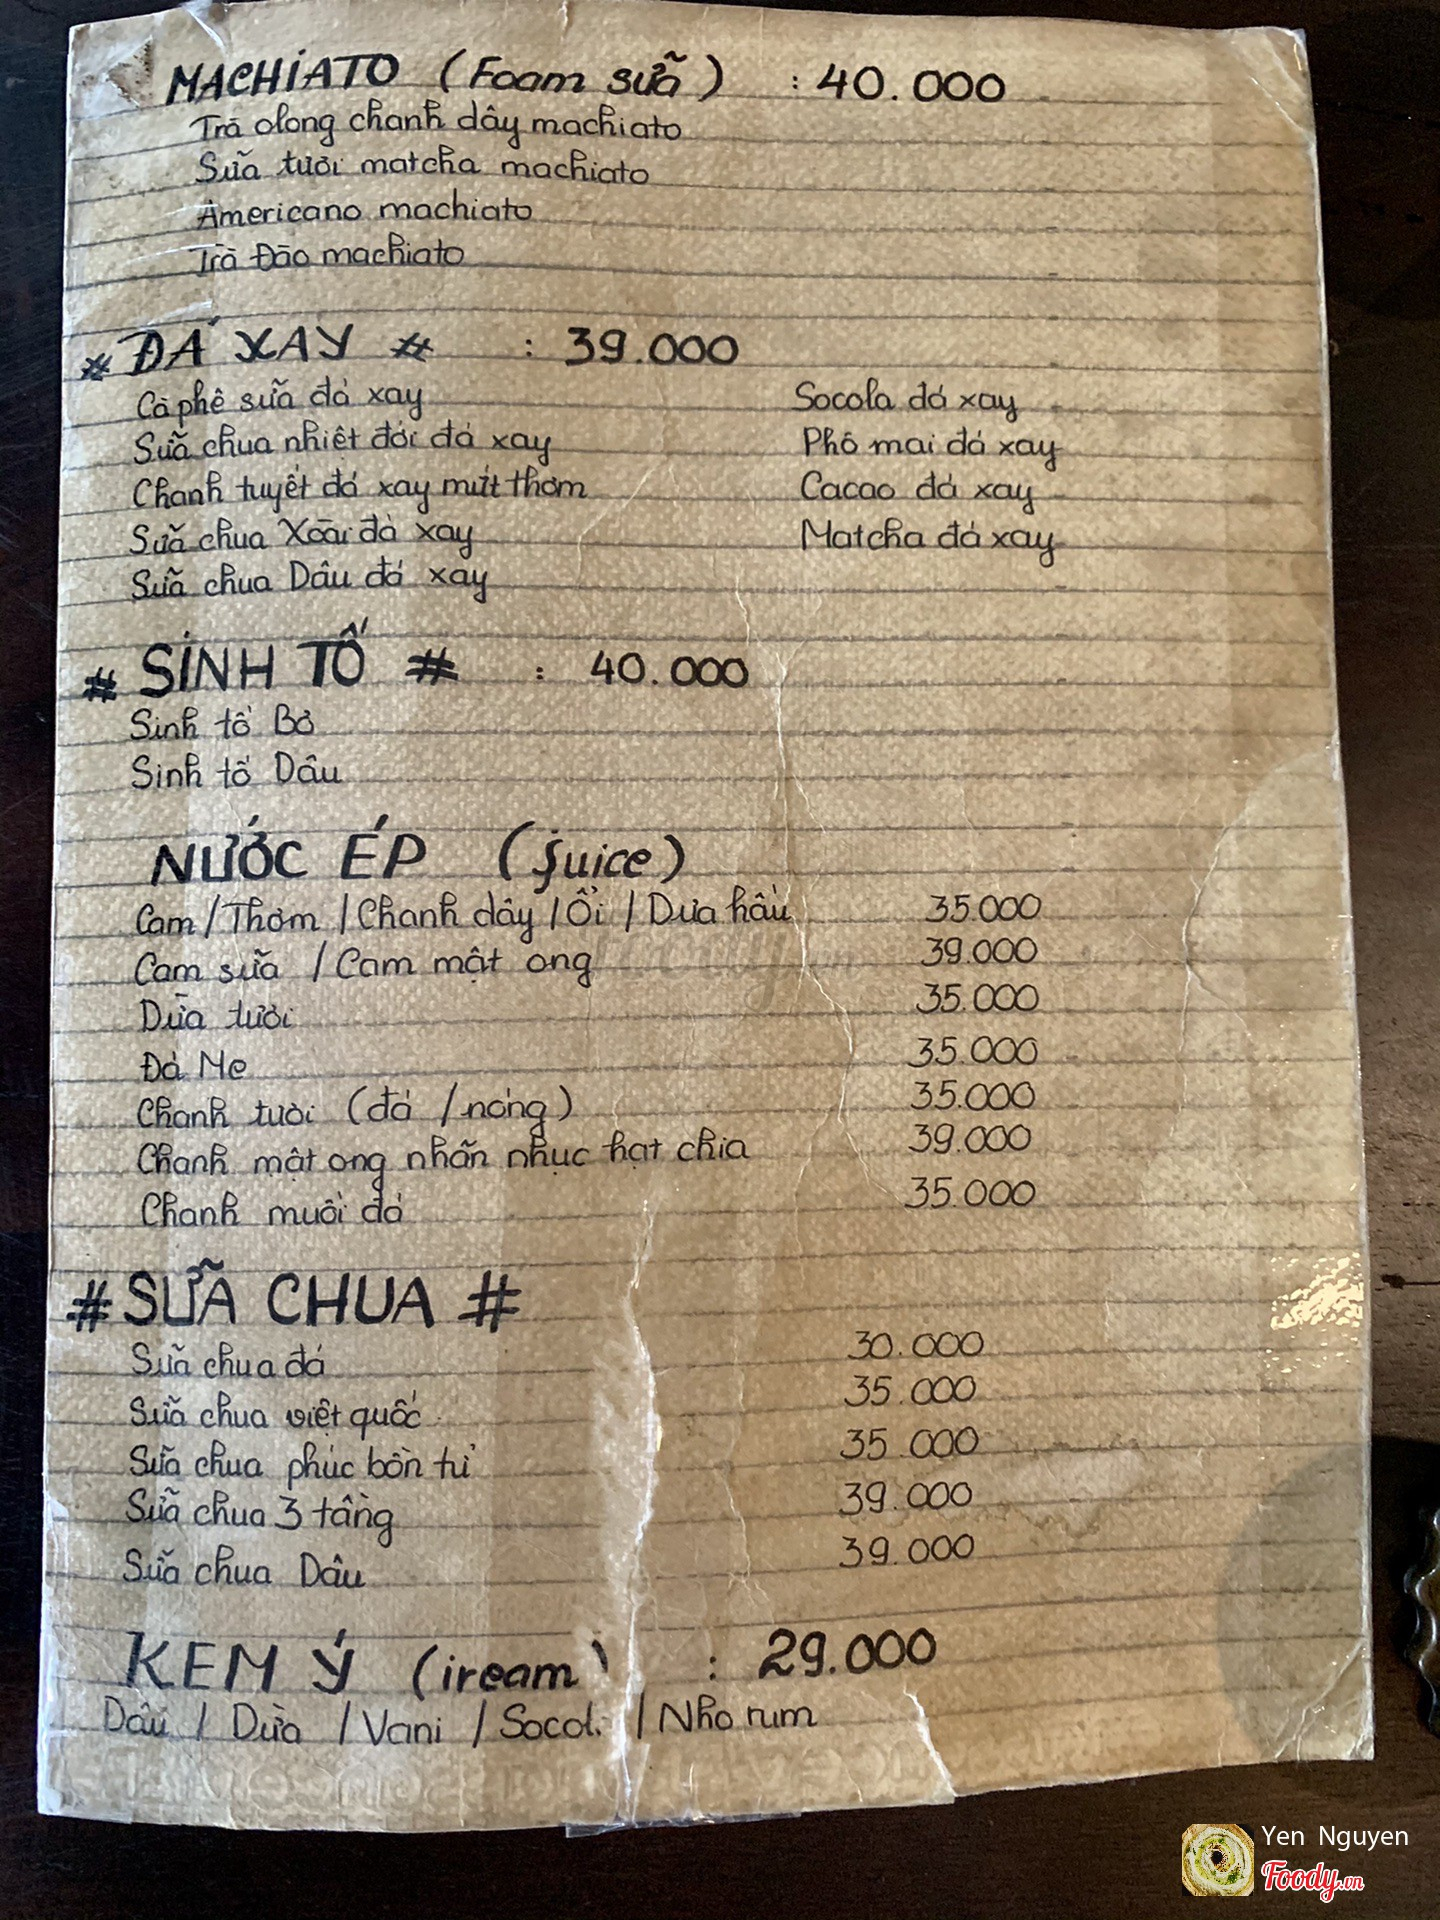 MACHIATO (Foam sữa) : 40.000
Trà olong chanh dây machiato
Sữa tươi matcha machiato
Americano machiato
Trà Đào machiato
# ĐÁ XAY # : 39.000
Cà phê sữa đá xay
Sữa chua nhiệt đới đá xay
Chanh tuyết đá xay mứt thơm
Sữa chua Xoài đá xay
Sữa chua Dâu đá xay
Socola đá xay
Phô mai đá xay
Cacao đá xay
Matcha đá xay
# SINH TỐ # : 40.000
Sinh tố Bơ
Sinh tố Dâu
NƯỚC ÉP (juice)
Cam / Thơm / Chanh dây / Ổi / Dưa hấu 35.000
Cam sữa / Cam mật ong 39.000
Dừa tươi 35.000
Đá Me 35.000
Chanh tươi (đá / nóng) 35.000
Chanh mật ong nhãn nhục hạt chia 39.000
Chanh muối đá 35.000
# SỮA CHUA #
Sữa chua đá 30.000
Sữa chua việt quốc 35.000
Sữa chua phúc bồn tử 35 000
Sữa chua 3 tầng 39.000
Sữa chua Dâu 39.000
KEM Ý (iream) : 29.000
Dâu / Dừa / Vani / Socol. / Nho rum
Yen Nguyen
Foody.vn